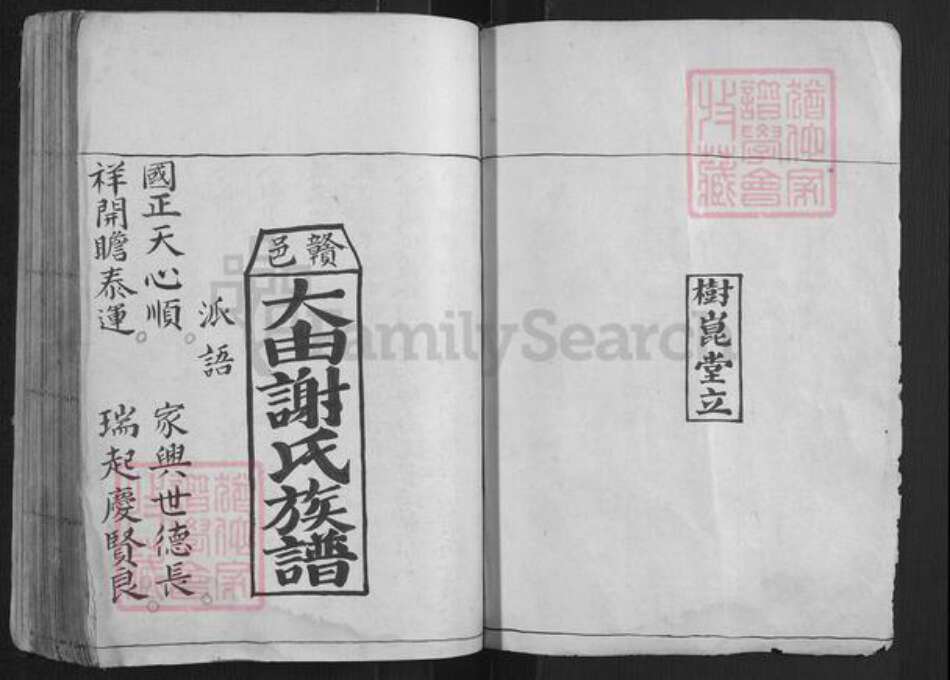 樹崑堂立
贛邑
大由謝氏族譜
派語
國正天心順。家興世德長。
祥開瞻泰運。瑞起慶賢良。
FamilySearch
譜學會
收藏